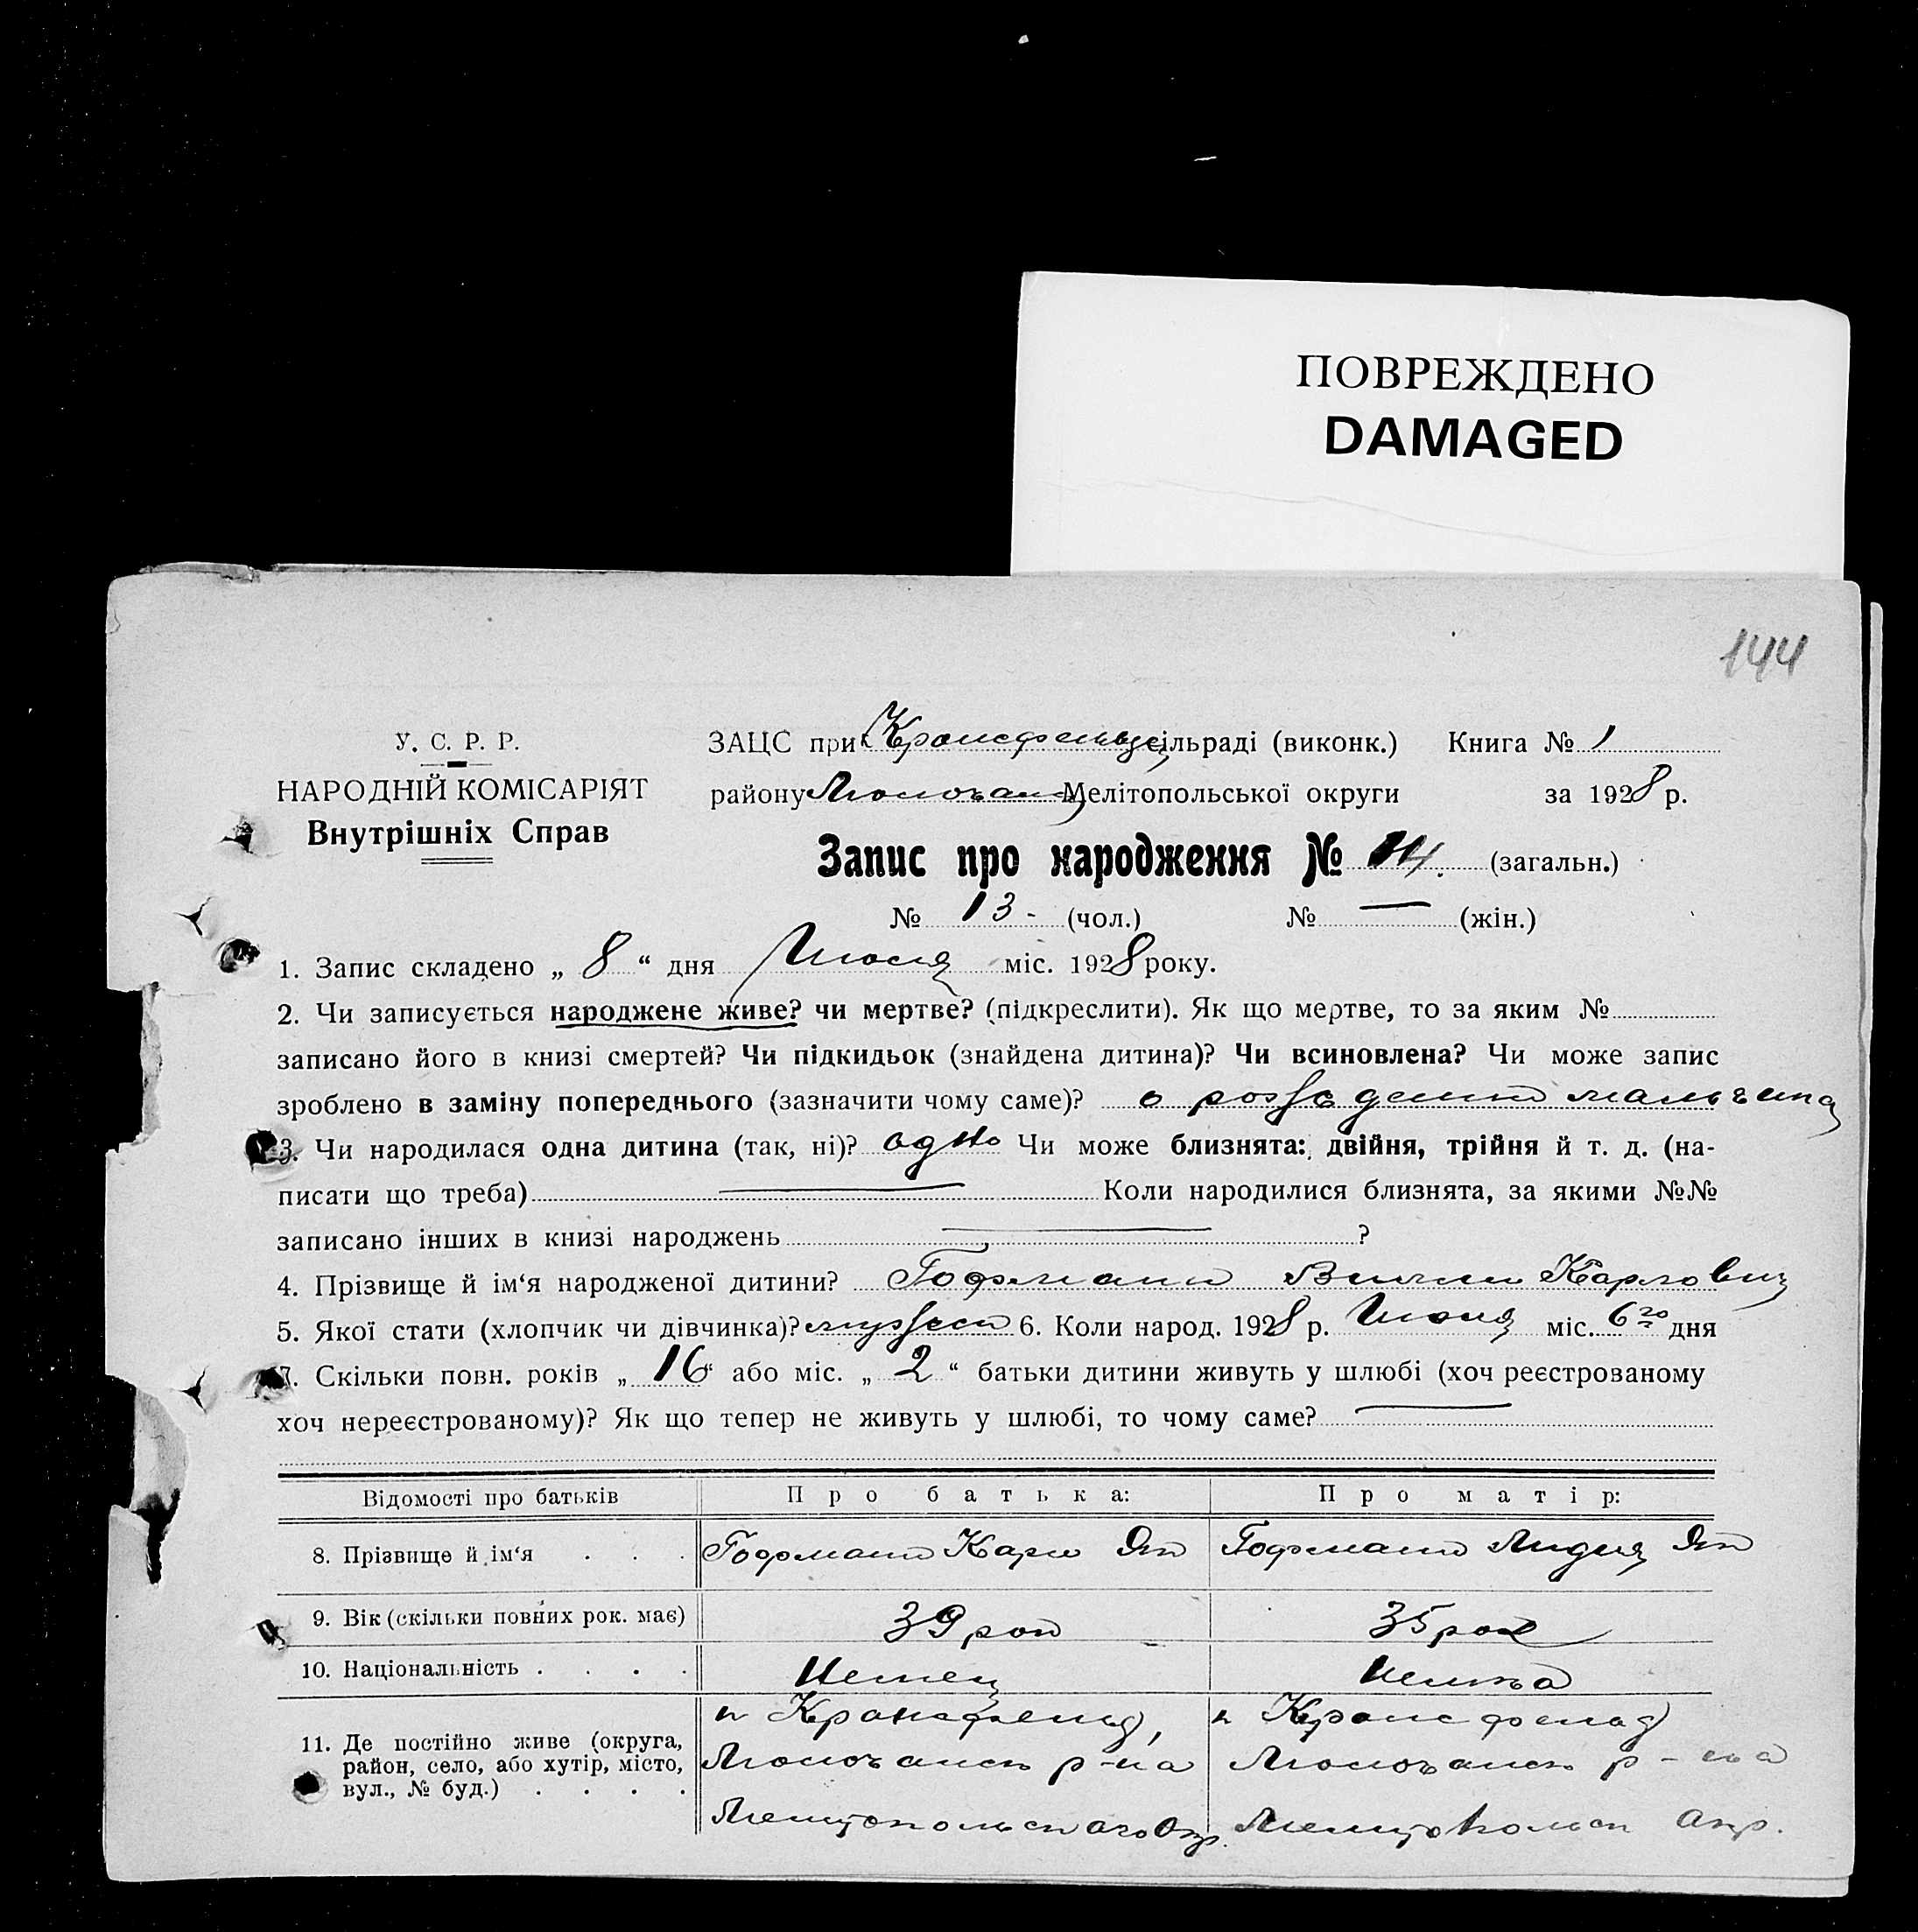 ПОВРЕЖДЕНО
DAMAGED
144
У. С. Р. Р.
НАРОДНІЙ КОМІСАРІЯТ
Внутрішніх Справ
ЗАЦС при сільраді (виконк.) Книга № 1
району Мелітопольської округи за 1928 р.
Запис про народження № 14. (загальн.)
№ 13 - (чол.) № — (жін.)
1. Запис складено „ 8 “ дня міс. 1928 року.
2. Чи записується народжене живе? чи мертве? (підкреслити). Як що мертве, то за яким №
записано його в книзі смертей? Чи підкидьок (знайдена дитина)? Чи всиновлена? Чи може запис
зроблено в заміну попереднього (зазначити чому саме)? о мальчика
3. Чи народилася одна дитина (так, ні)? одно Чи може близнята: двійня, трійня й т. д. (на-
писати що треба) — Коли народилися близнята, за якими №№
записано інших в книзі народжень — ?
4. Прізвище й ім‘я народженої дитини? Гофманн Карлович
5. Якої стати (хлопчик чи дівчинка)? 6. Коли народ. 1928 р. міс. 6го дня
7. Скільки повн. років „ 16 “ або міс. „ 2 “ батьки дитини живуть у шлюбі (хоч реєстрованому
хоч нереєстрованому)? Як що тепер не живуть у шлюбі, то чому саме? —
Відомості про батьків Про батька: Про матір:
8. Прізвище й ім‘я . . . Гофманн Карл Гофманн Лидия
9. Вік (скільки повних рок. має) 39 35
10. Національність . . . . Немец Немка
11. Де постійно живе (округа, район, село, або хутір, місто, вул., № буд.) . . . .
п Крансфельд, п Крансфельд
Молочанск р-на Молочанск р-на
Мелитопольск Окр. Мелитопольск Окр.